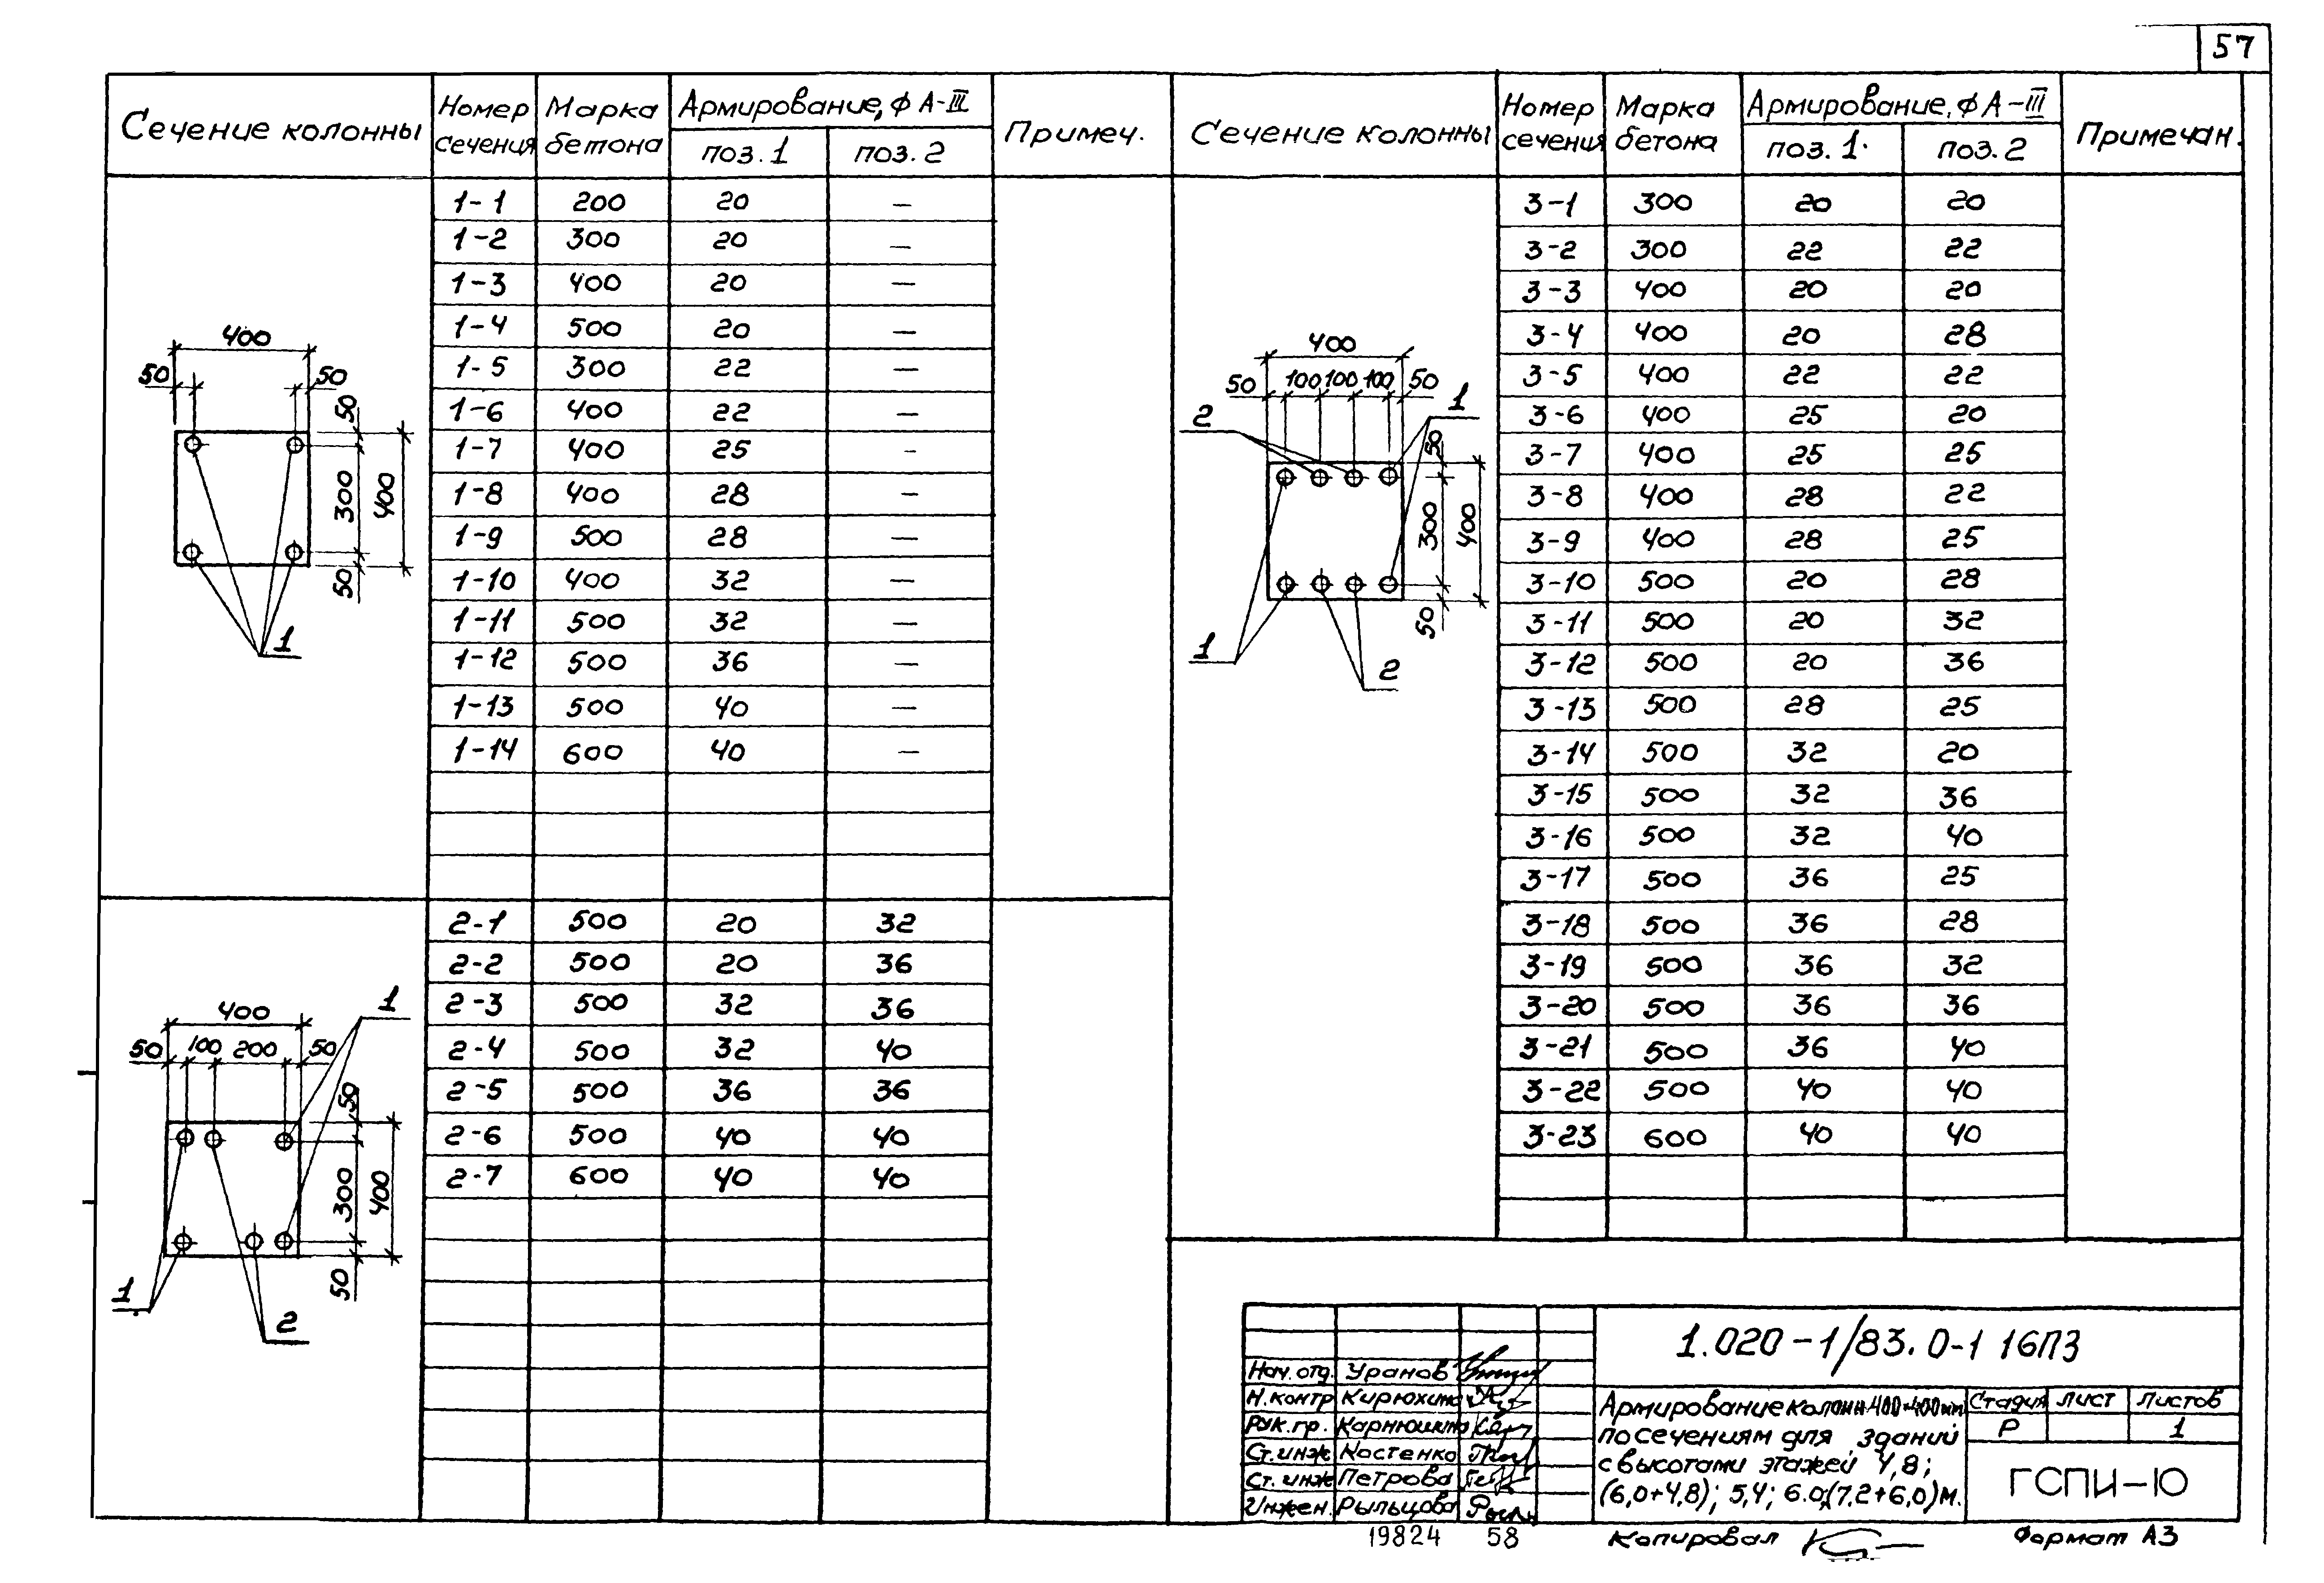 57
Сечение колонны
Номер сечения
Марка бетона
Армирование, ф А-III
поз. 1
поз. 2
Примеч.
400
50
50
50
300
400
50
1
1-1 200 20 —
1-2 300 20 —
1-3 400 20 —
1-4 500 20 —
1-5 300 22 —
1-6 400 22 —
1-7 400 25 —
1-8 400 28 —
1-9 500 28 —
1-10 400 32 —
1-11 500 32 —
1-12 500 36 —
1-13 500 40 —
1-14 600 40 —
1
400
50 100 200 50
50
300
400
50
1
2
2-1 500 20 32
2-2 500 20 36
2-3 500 32 36
2-4 500 32 40
2-5 500 36 36
2-6 500 40 40
2-7 600 40 40
Сечение колонны
Номер сечения
Марка бетона
Армирование, ф А-III
поз. 1
поз. 2
Примечан.
400
50 100 100 100 50
2
1
50
300
400
50
1
2
3-1 300 20 20
3-2 300 22 22
3-3 400 20 20
3-4 400 20 28
3-5 400 22 22
3-6 400 25 20
3-7 400 25 25
3-8 400 28 22
3-9 400 28 25
3-10 500 20 28
3-11 500 20 32
3-12 500 20 36
3-13 500 28 25
3-14 500 32 20
3-15 500 32 36
3-16 500 32 40
3-17 500 36 25
3-18 500 36 28
3-19 500 36 32
3-20 500 36 36
3-21 500 36 40
3-22 500 40 40
3-23 600 40 40
1.020-1/83. 0-1 16ПЗ
Нач. отд. Уранов
Н. контр Кирюхина
Рук. гр. Карнюшкина
Ст. инж Костенко
Ст. инж Петрова
Инжен. Рыльцова
Армирование колонн 400×400мм
по сечениям для зданий
с высотами этажей 4,8;
(6,0+4,8); 5,4; 6.0;(7,2+6,0)м.
Стадия Лист Листов
Р 1
ГСПИ-10
19824 58
Копировал
Формат А3